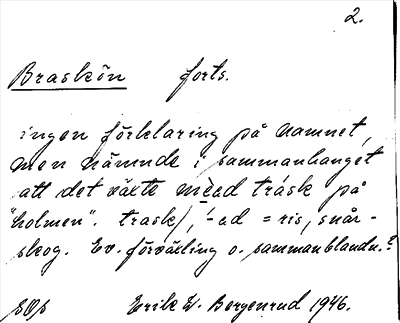 2.
Braskön forts.
ingen förklaring på namnet,
men nämnde i sammanhanget
att det växte mèad tràsk på
"holmen". trask/, -ad = ris, snår-
skog. Ev. förväxling o. sammanblandn.?
Erik W. Bergenrud 1946.